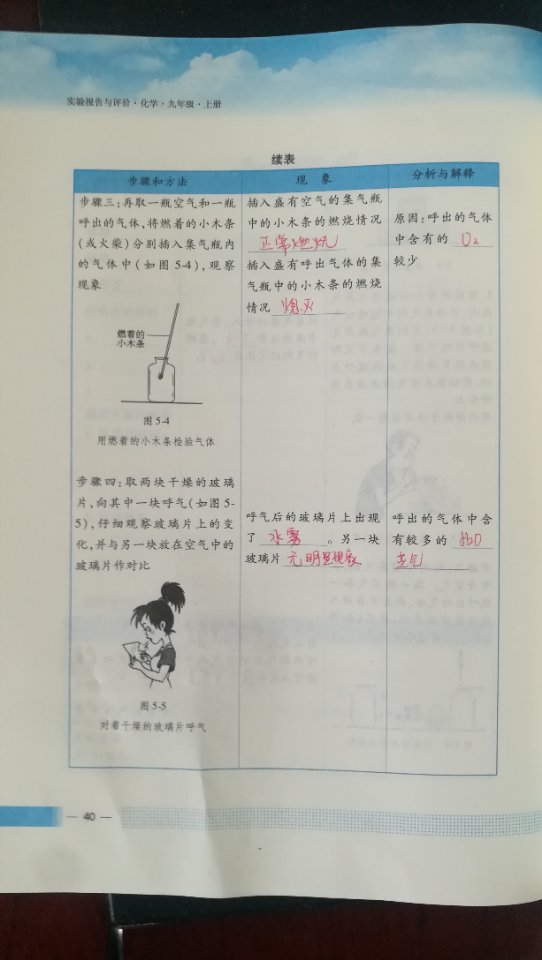 实验报告与评价·化学·九年级·上册
续表
步骤和方法
现 象
分析与解释
步骤三:再取一瓶空气和一瓶
呼出的气体,将燃着的小木条
(或火柴)分别插入集气瓶内
的气体中(如图5-4),观察
现象
燃着的
小木条
图5-4
用燃着的小木条检验气体
插入盛有空气的集气瓶
中的小木条的燃烧情况
正常燃烧
插入盛有呼出气体的集
气瓶中的小木条的燃烧
情况 熄灭
原因:呼出的气体
中含有的 O₂
较少
步骤四:取两块干燥的玻璃
片,向其中一块呼气(如图5-
5),仔细观察玻璃片上的变
化,并与另一块放在空气中的
玻璃片作对比
图5-5
对着干燥的玻璃片呼气
呼气后的玻璃片上出现
了 水雾 。另一块
玻璃片 无明显现象
呼出的气体中含
有较多的 H₂O
— 40 —